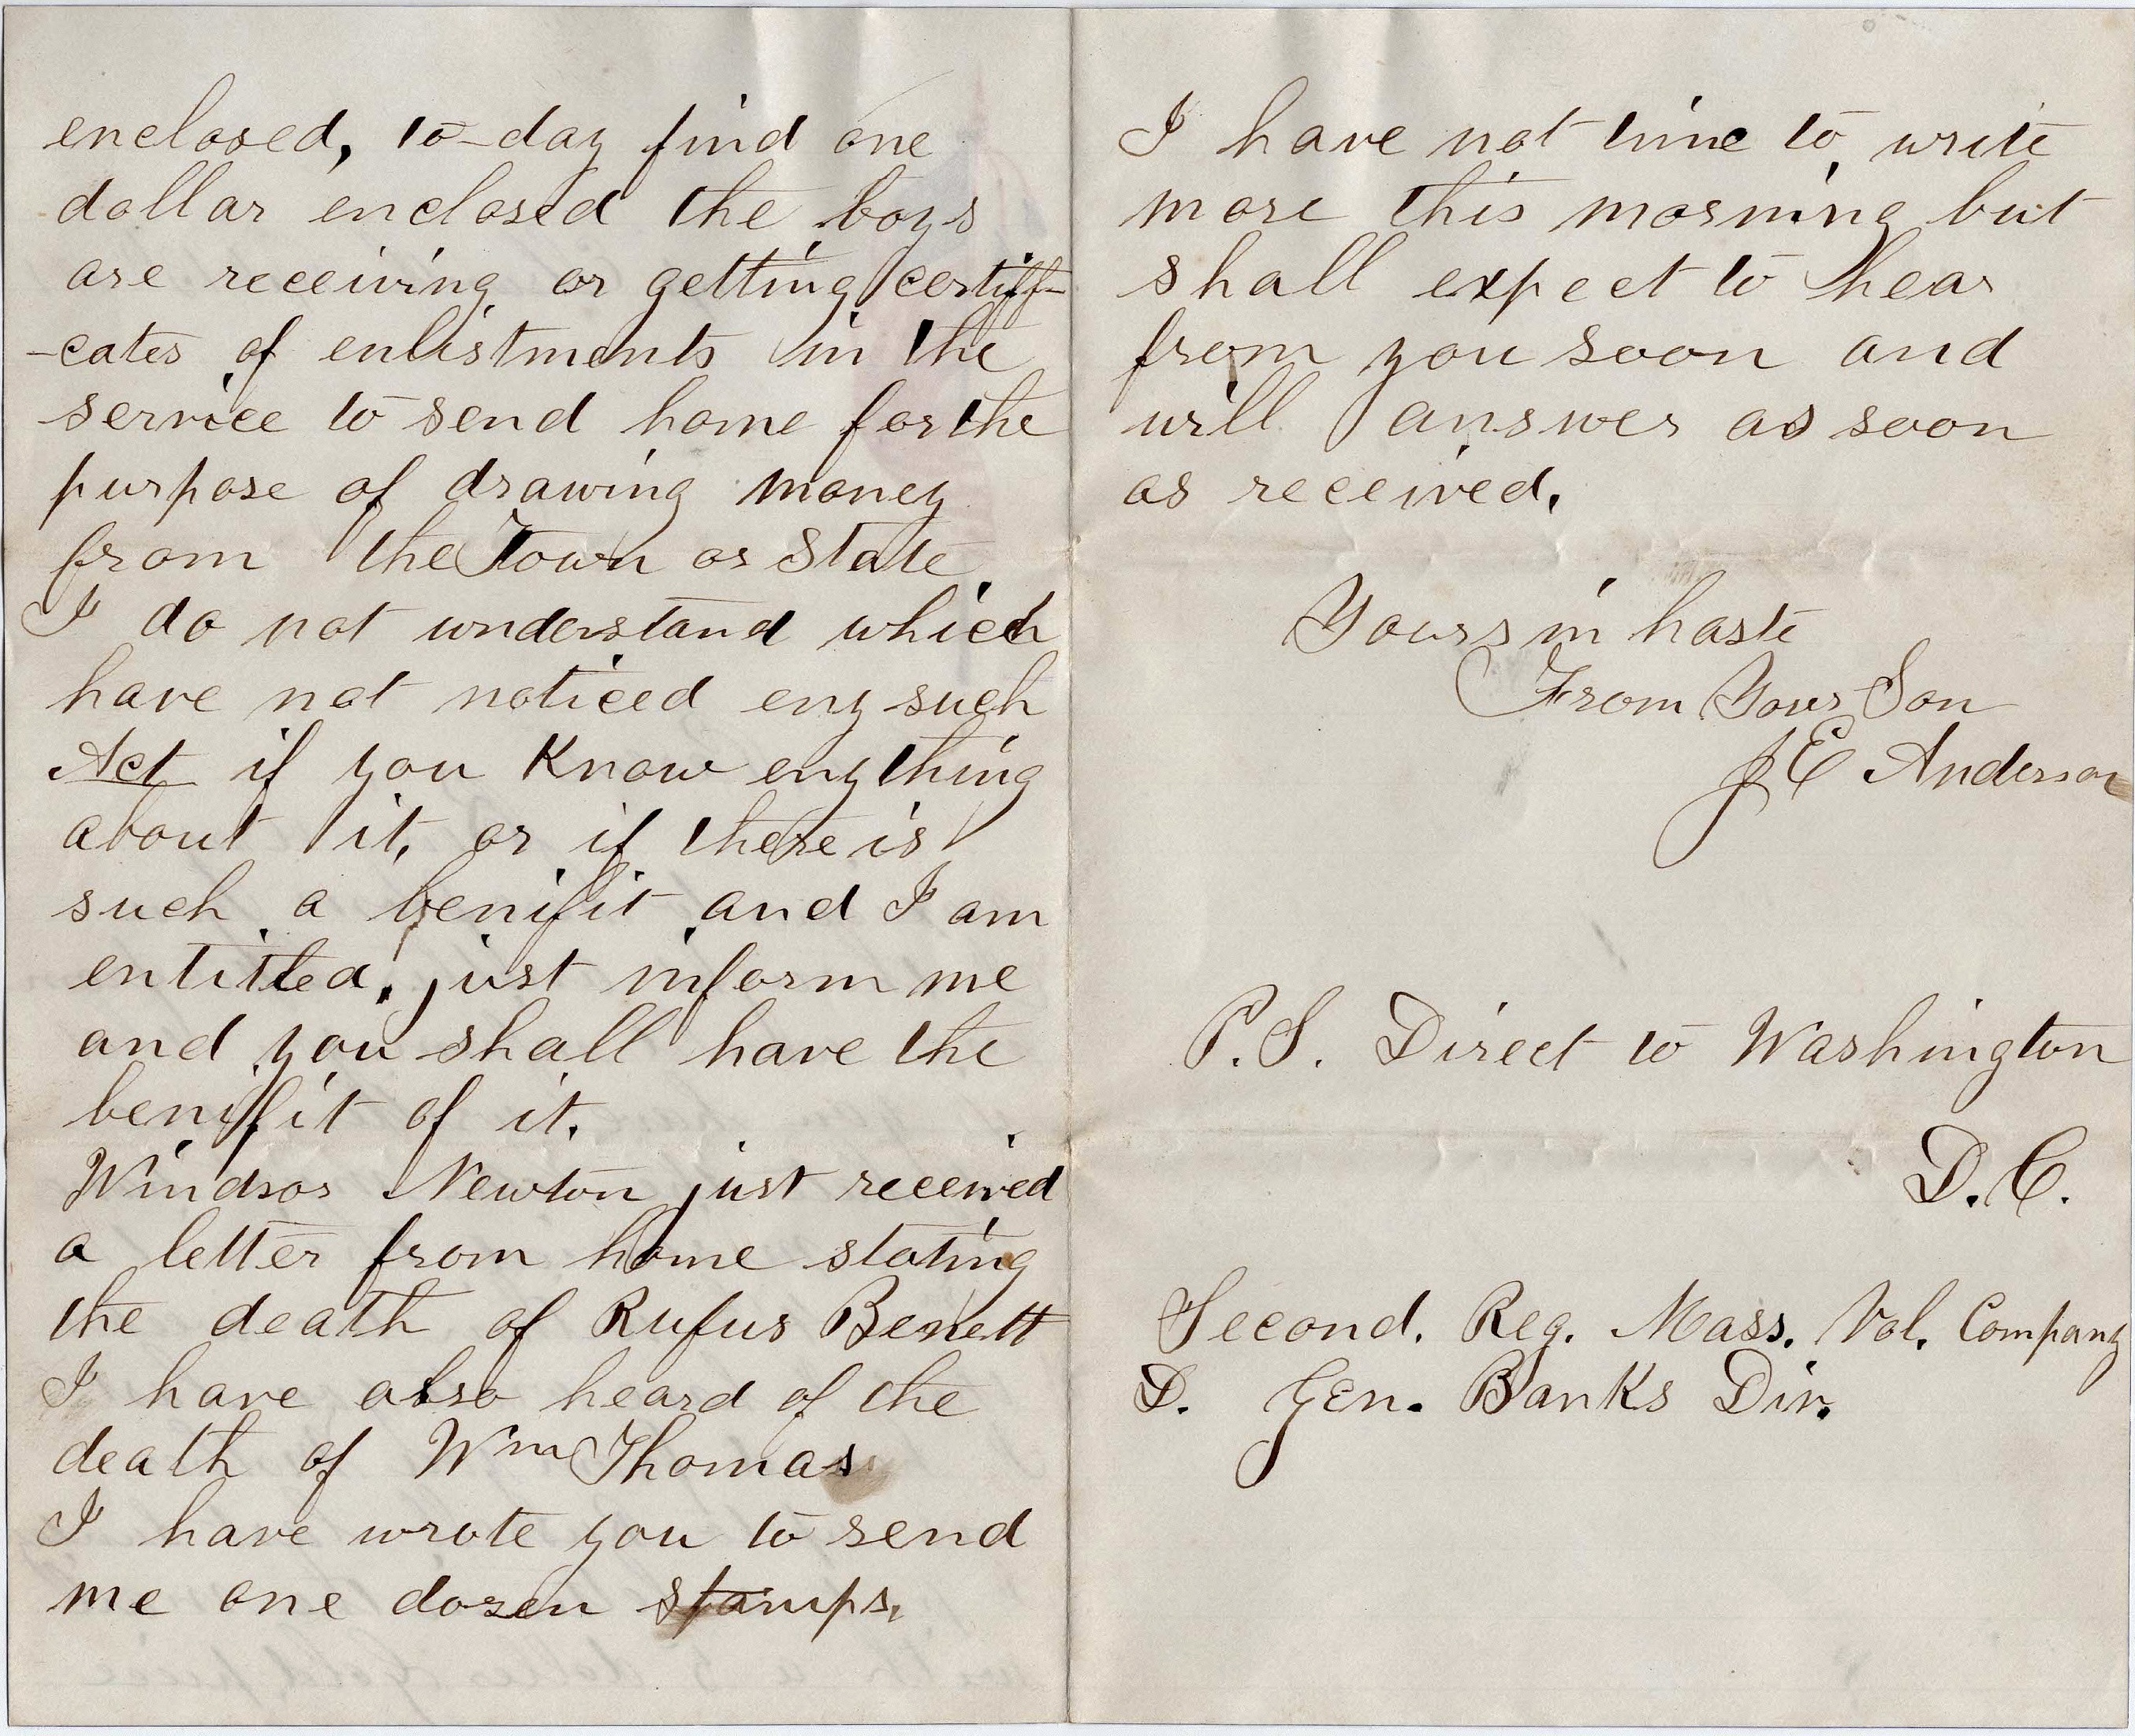 enclosed, to-day find one
dollar enclosed the boys
are receiving or getting certiff-
-cates of enlistments in the
service to send home for the
purpose of drawing money
from the Town or State.
I do not understand which
have not noticed eny such
Act if you Know enything
about it, or if there is
such a benifit and I am
entitled, just inform me
and you shall have the
benifit of it.
Windsor Newton just received
a letter from home stating
the death of Rufus Benett
I have also heard of the
death of Wm Thomas
I have wrote you to send
me one dozen stamps.
I have not time to write
more this morning but
shall expect to hear
from you soon and
will answer as soon
as received.
Yours in haste
From Your Son
J E Anderson
P.S. Direct to Washington
D.C.
Second. Reg. Mass. Vol. Company
D. Gen. Banks Div.